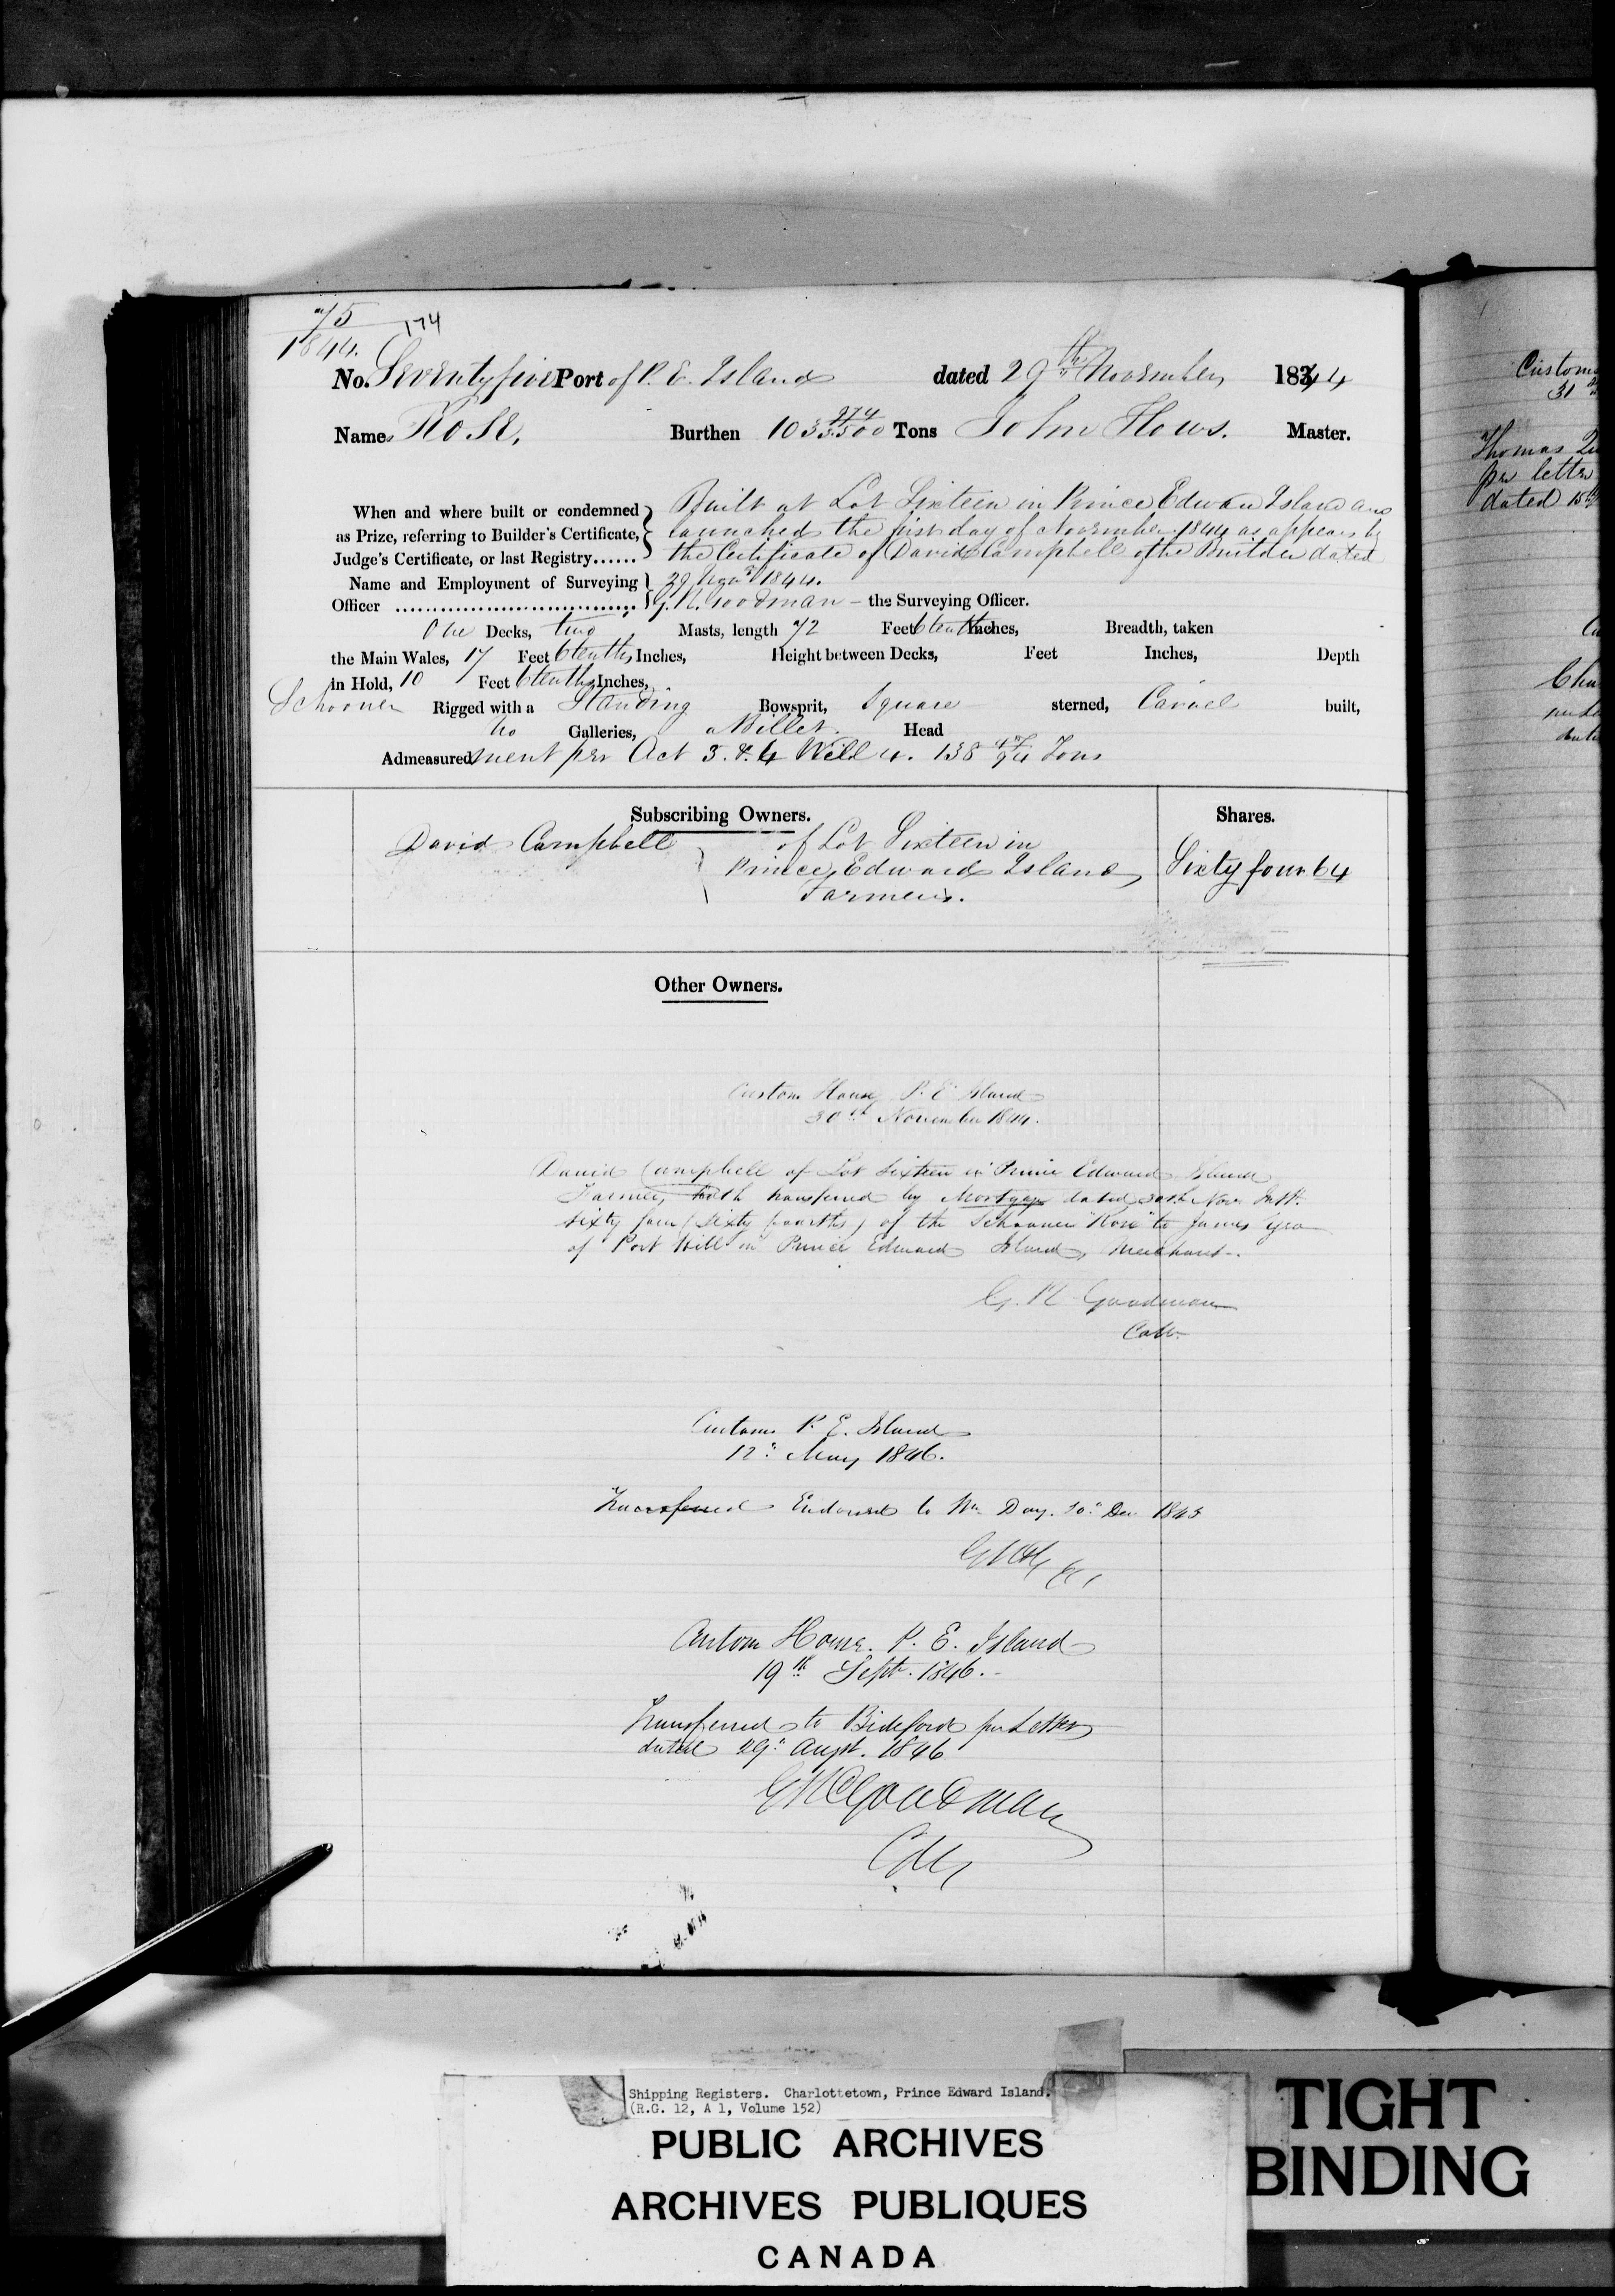 75
1844. 174
No. Seventy five Port of P. E. Island dated 29th November 1844
Name Rose, Burthen 103 974/3500 Tons John Hows. Master.
When and where built or condemned as Prize, referring to Builder's Certificate, Judge's Certificate, or last Registry......
Built at Lot Sixteen in Prince Edward Island and
launched the first day of November 1844 as appears by
the Certificate of David Campbell of the Builder dated
29 Novr 1844.
Name and Employment of Surveying
Officer ................................. G. R. Goodman – the Surveying Officer.
One Decks, two Masts, length 72 Feet 6 tenths Inches, Breadth, taken
the Main Wales, 17 Feet 6 tenths Inches, Height between Decks, Feet Inches, Depth
in Hold, 10 Feet 6 tenths Inches,
Schooner Rigged with a Standing Bowsprit, Square sterned, Carvel built,
No Galleries, a Billet Head
Admeasurement per Act 3. & 4 Will 4. 138 /94 Tons
Subscribing Owners. Shares.
David Campbell of Lot Sixteen in
Prince Edward Island, Sixty four 64
Farmer.
Other Owners.
Custom House P. E. Island
30th November 1844.
David Campbell of Lot Sixteen in Prince Edward Island
Farmer, hath transferred by Mortgage dated 30th Novr Inst.
sixty four (sixty fourths) of the Schooner "Rose" to James Yeo
of Port Hill in Prince Edward Island, Merchant.
G. R. Goodman
Collr
Customs P. E. Island
12" May 1846.
Transferred Endorsed to Wm Day. 30" Dec 1845
GRG
Custom House. P. E. Island
19th Sept. 1846.
Transferred to Bideford per Letter
dated 29" Augst. 1846
GRGoodman
Collr
Customs
31
Thomas
per letter
dated 15
Shipping Registers. Charlottetown, Prince Edward Island.
(R.G. 12, A 1, Volume 152)
PUBLIC ARCHIVES
ARCHIVES PUBLIQUES
CANADA
TIGHT
BINDING